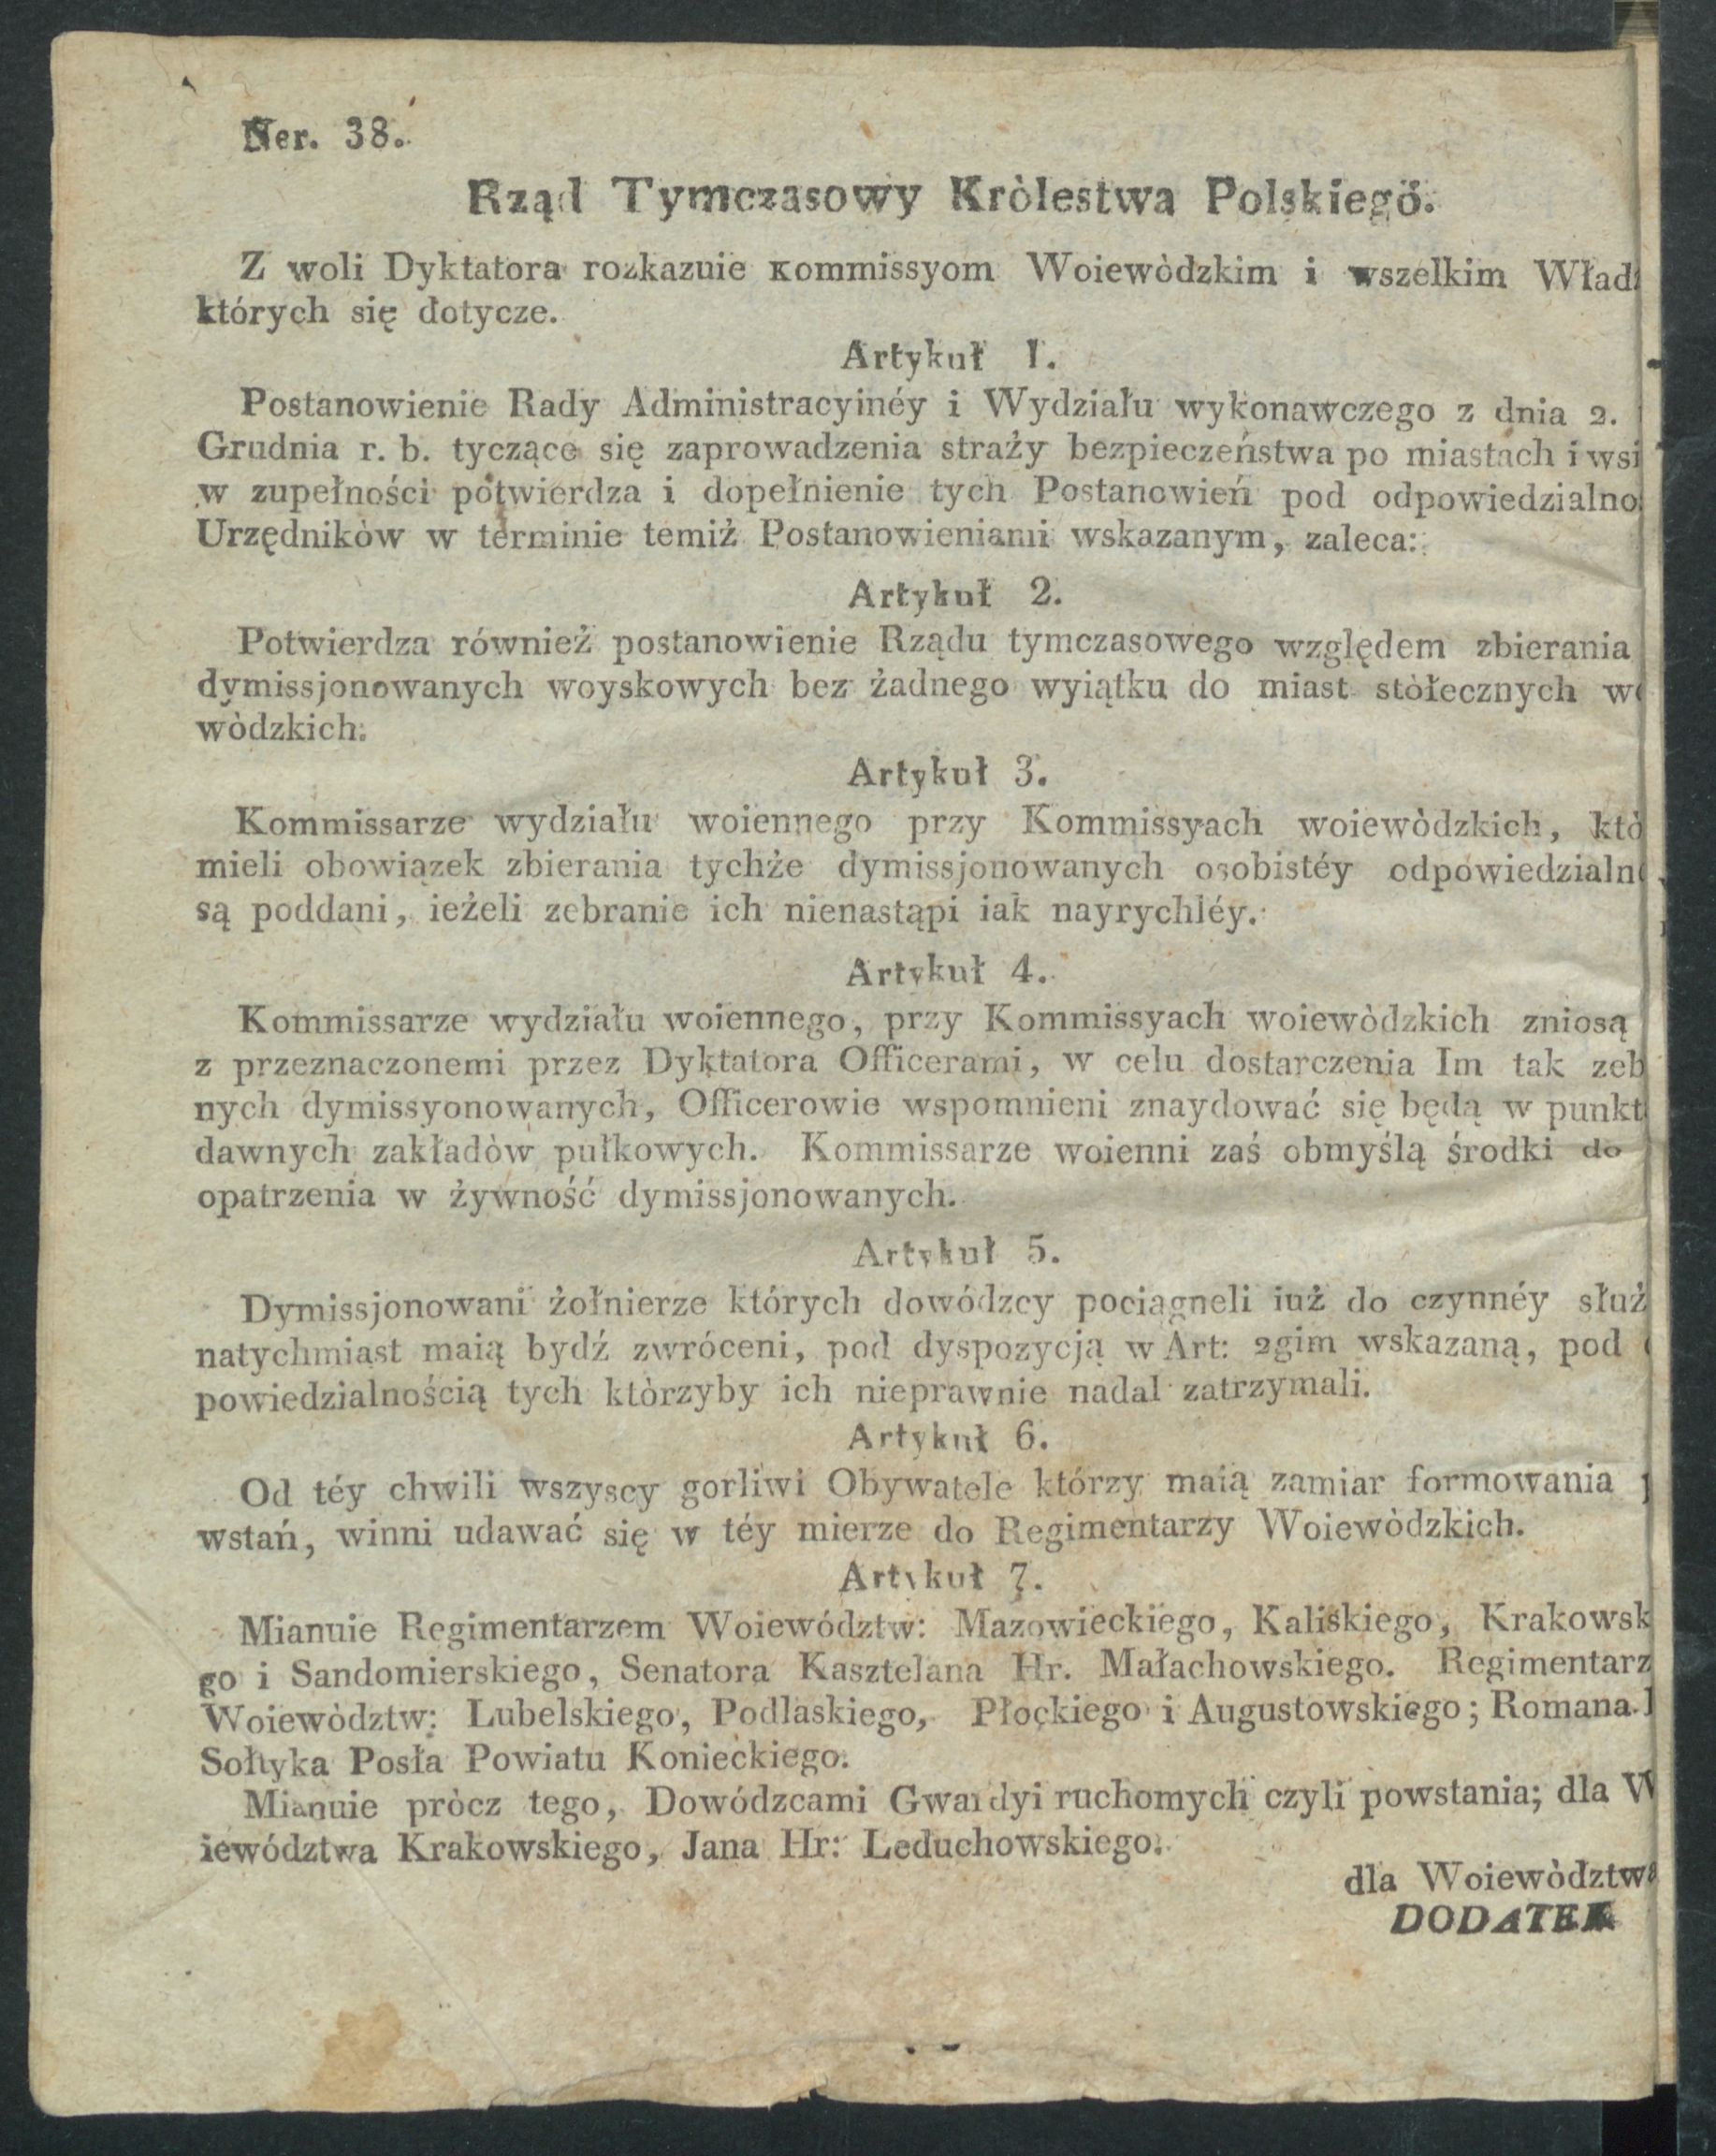 Ner. 38.
Rząd Tymczasowy Kròlestwa Polskiego.
Z woli Dyktatora rozkazuie Kommissyom Woiewòdzkim i wszelkim Wład
których się dotycze.
Artykuł 1.
Postanowienie Rady Administracyinéy i Wydziału wykonawczego z dnia 2.
Grudnia r. b. tyczące się zaprowadzenia straży bezpieczeństwa po miastach i wsi
w zupełności potwierdza i dopełnienie tych Postanowień pod odpowiedzialno
Urzędników w terminie temiż Postanowieniami wskazanym, zaleca:
Artykuł 2.
Potwierdza również postanowienie Rządu tymczasowego względem zbierania
dymissjonowanych woyskowych bez żadnego wyiątku do miast stòłecznych wo
wòdzkich.
Artykuł 3.
Kommissarze wydziału woiennego przy Kommissyach woiewòdzkich, któ
mieli obowiązek zbierania tychże dymissjonowanych osobistéy odpowiedzialno
są poddani, ieżeli zebranie ich nienastąpi iak nayrychléy.
Artykuł 4.
Kommissarze wydziału woiennego, przy Kommissyach woiewòdzkich zniosą
z przeznaczonemi przez Dyktatora Officerami, w celu dostarczenia Im tak zeb
nych dymissyonowanych, Officerowie wspomnieni znaydować się będą w punkt
dawnych zakładòw pułkowych. Kommissarze woienni zaś obmyślą środki do
opatrzenia w żywność dymissjonowanych.
Artykuł 5.
Dymissjonowani żołnierze których dowódzcy pociągneli iuż do czynnéy służ
natychmiast maią bydź zwróceni, pod dyspozycją w Art: 2gim wskazaną, pod
powiedzialnością tych którzyby ich nieprawnie nadal zatrzymali.
Artykuł 6.
Od téy chwili wszyscy gorliwi Obywatele którzy maią zamiar formowania
wstań, winni udawać się w téy mierze do Regimentarzy Woiewòdzkich.
Artykuł 7.
Mianuie Regimentarzem Woiewództw: Mazowieckiego, Kaliskiego, Krakowsk
go i Sandomierskiego, Senatora Kasztelana Hr. Małachowskiego. Regimentarz
Woiewòdztw: Lubelskiego, Podlaskiego, Płockiego i Augustowskiego; Romana
Sołtyka Posła Powiatu Konieckiego.
Mianuie pròcz tego, Dowódzcami Gwardyi ruchomych czyli powstania; dla W
iewództwa Krakowskiego, Jana Hr: Leduchowskiego.
dla Woiewòdztwa
DODATEK